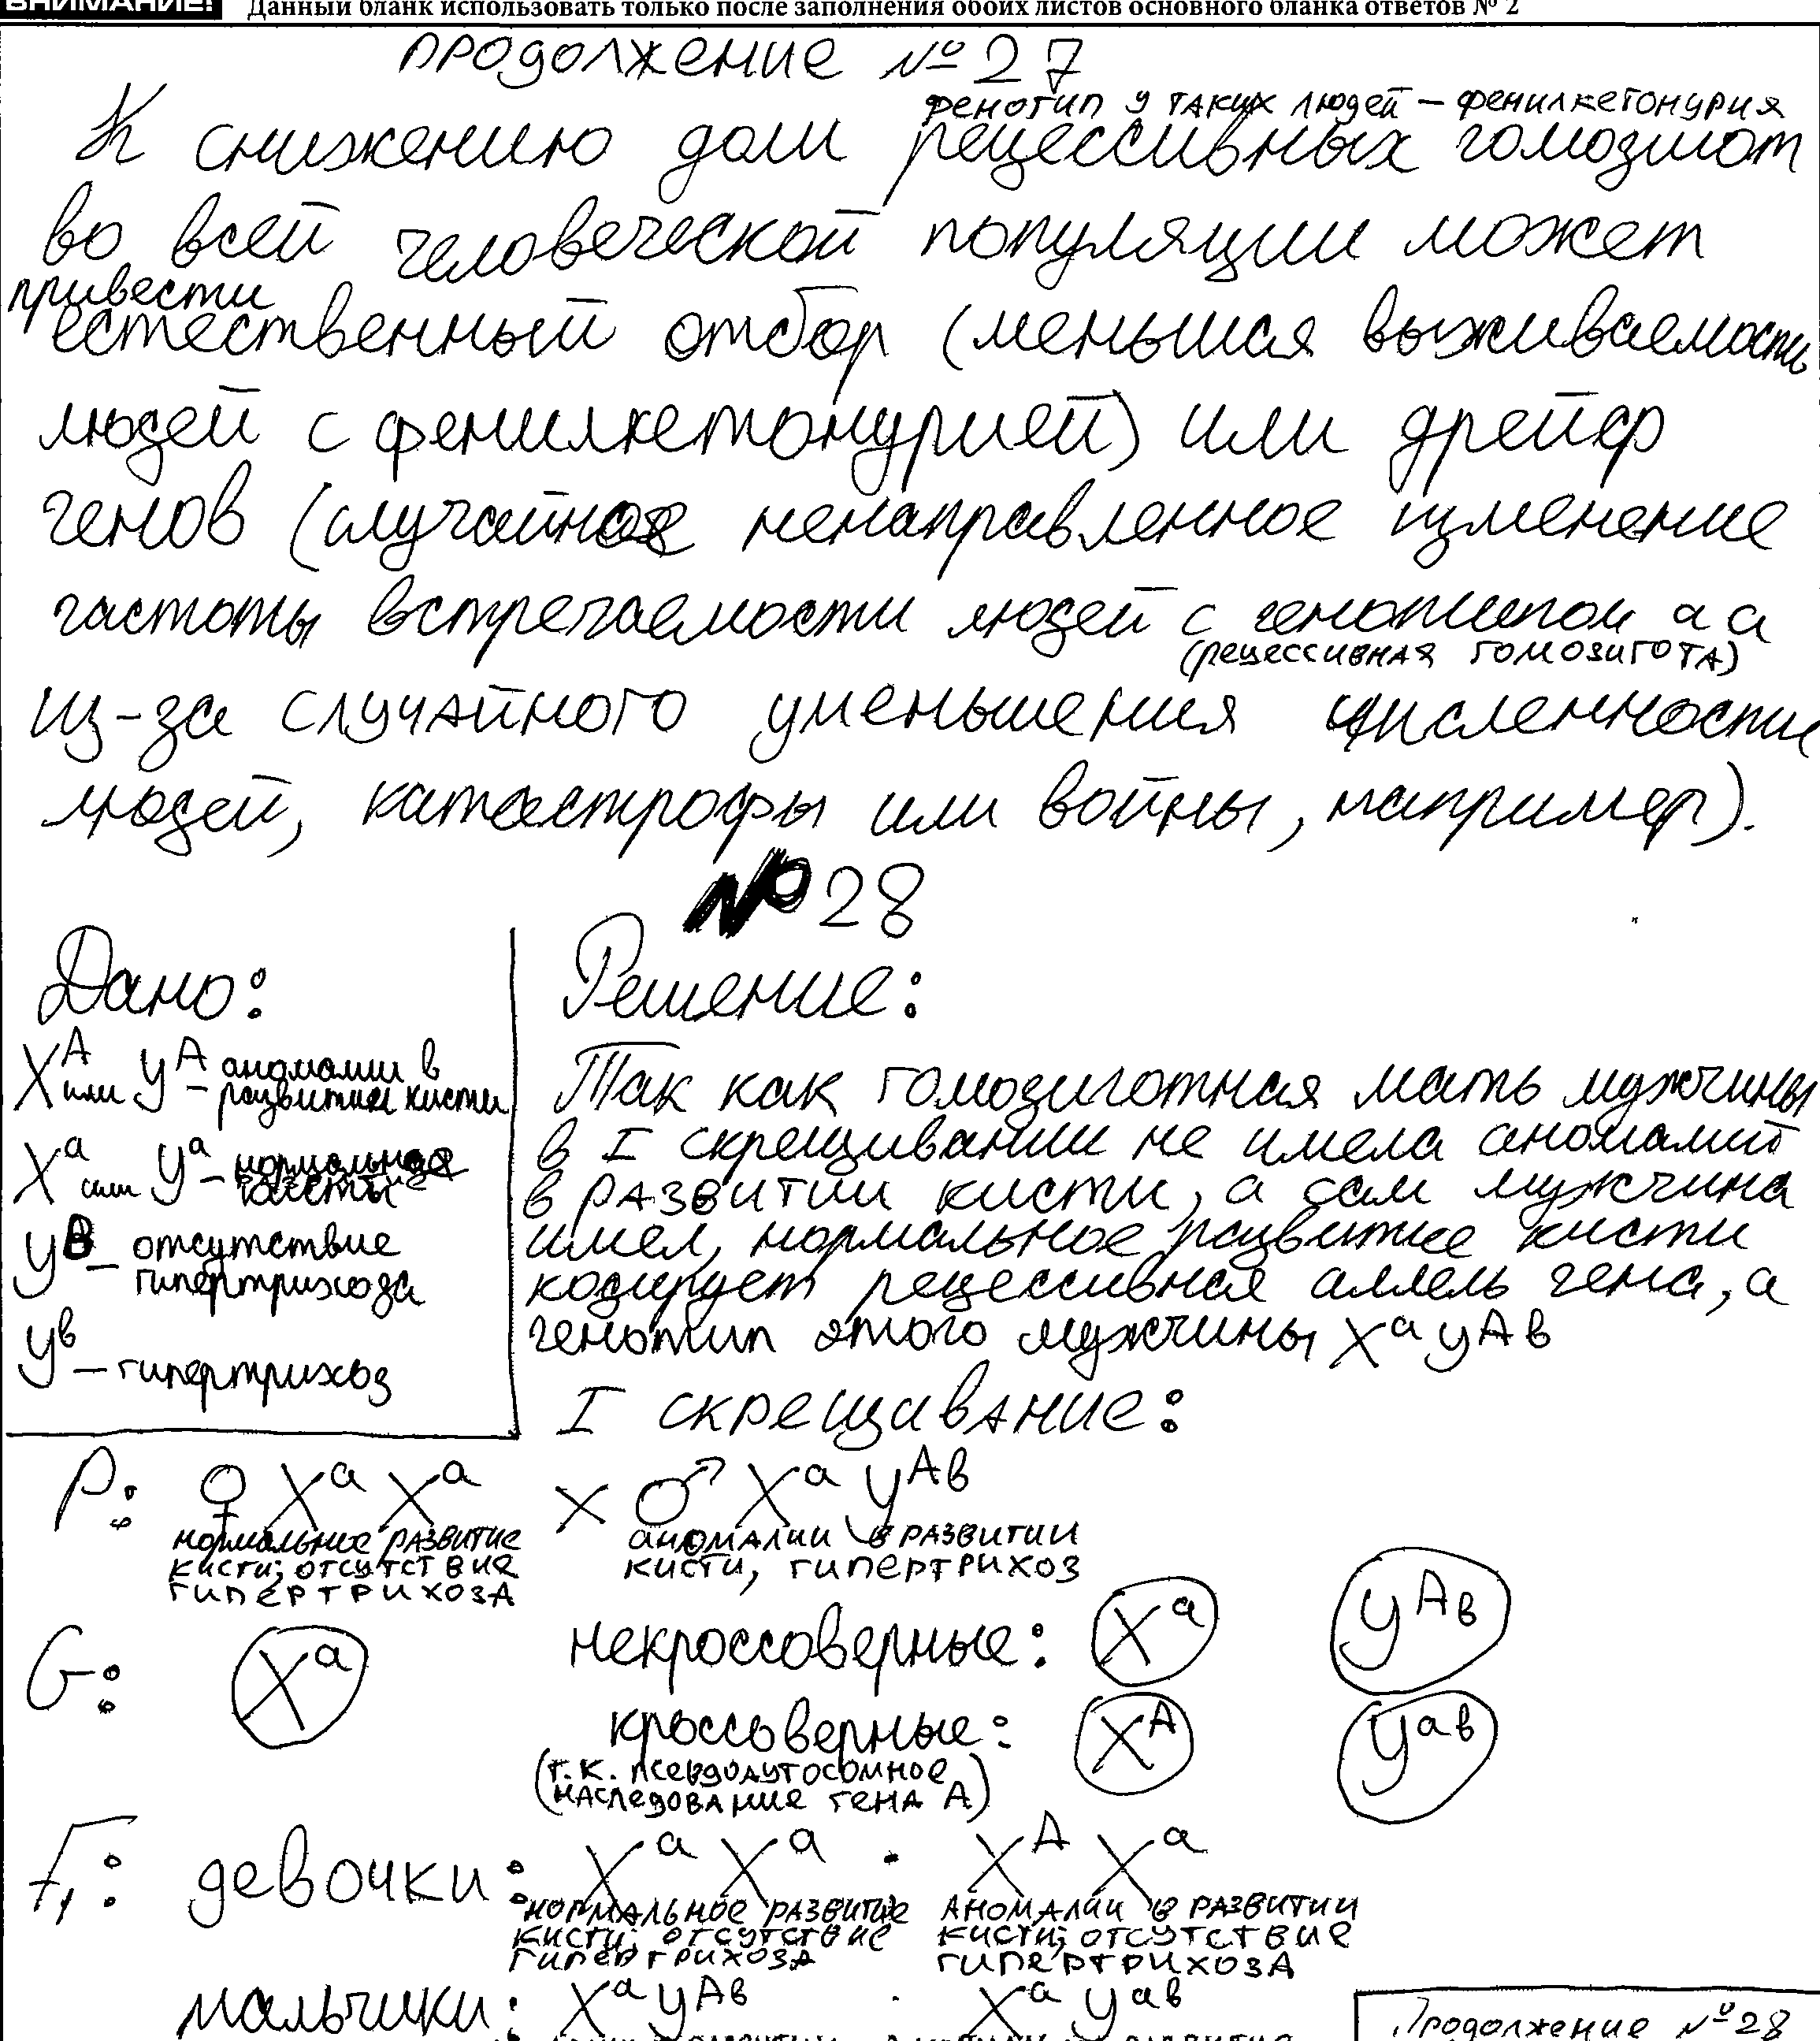 ВНИМАНИЕ! Данный бланк использовать только после заполнения обоих листов основного бланка ответов № 2
Продолжение №27
фенотип у таких людей – фенилкетонурия
К снижению доли рецессивных гомозигот
во всей человеческой популяции может
привести
естественный отбор (меньшая выживаемость
людей с фенилкетонурией) или дрейф
генов (случайное ненаправленное изменение
частоты встречаемости людей с генотипом аа
(рецессивная гомозигота)
из-за случайного уменьшения численности
людей, катастрофы или войны, например).
№28
Дано:
X^A или У^A – аномалии в
развитии кисти
X^a или У^a – нормальное
кисты
У^В – отсутствие
гипертрихоза
У^в – гипертрихоз
Решение:
Так как гомозиготная мать мужчины
в I скрещивании не имела аномалий
в развитии кисти, а сам мужчина
имел, нормальное развитие кисти
кодирует рецессивная аллель гена, а
генотип этого мужчины X^a У^Ав
I скрещивание:
P: ♀ X^a X^a × ♂ X^a У^Ав
нормальное развитие аномалии в развитии
кисти; отсутствие кисти, гипертрихоз
гипертрихоза
G: X^a некроссоверные: X^a У^Ав
кроссоверные: X^A У^ав
(т.к. псевдоаутосомное
наследование гена А)
F₁: девочки: X^a X^a : X^A X^a
нормальное развитие аномалии в развитии
кисти; отсутствие кисти; отсутствие
гипертрихоза гипертрихоза
мальчики: X^a У^Ав : X^a У^ав
Продолжение №28